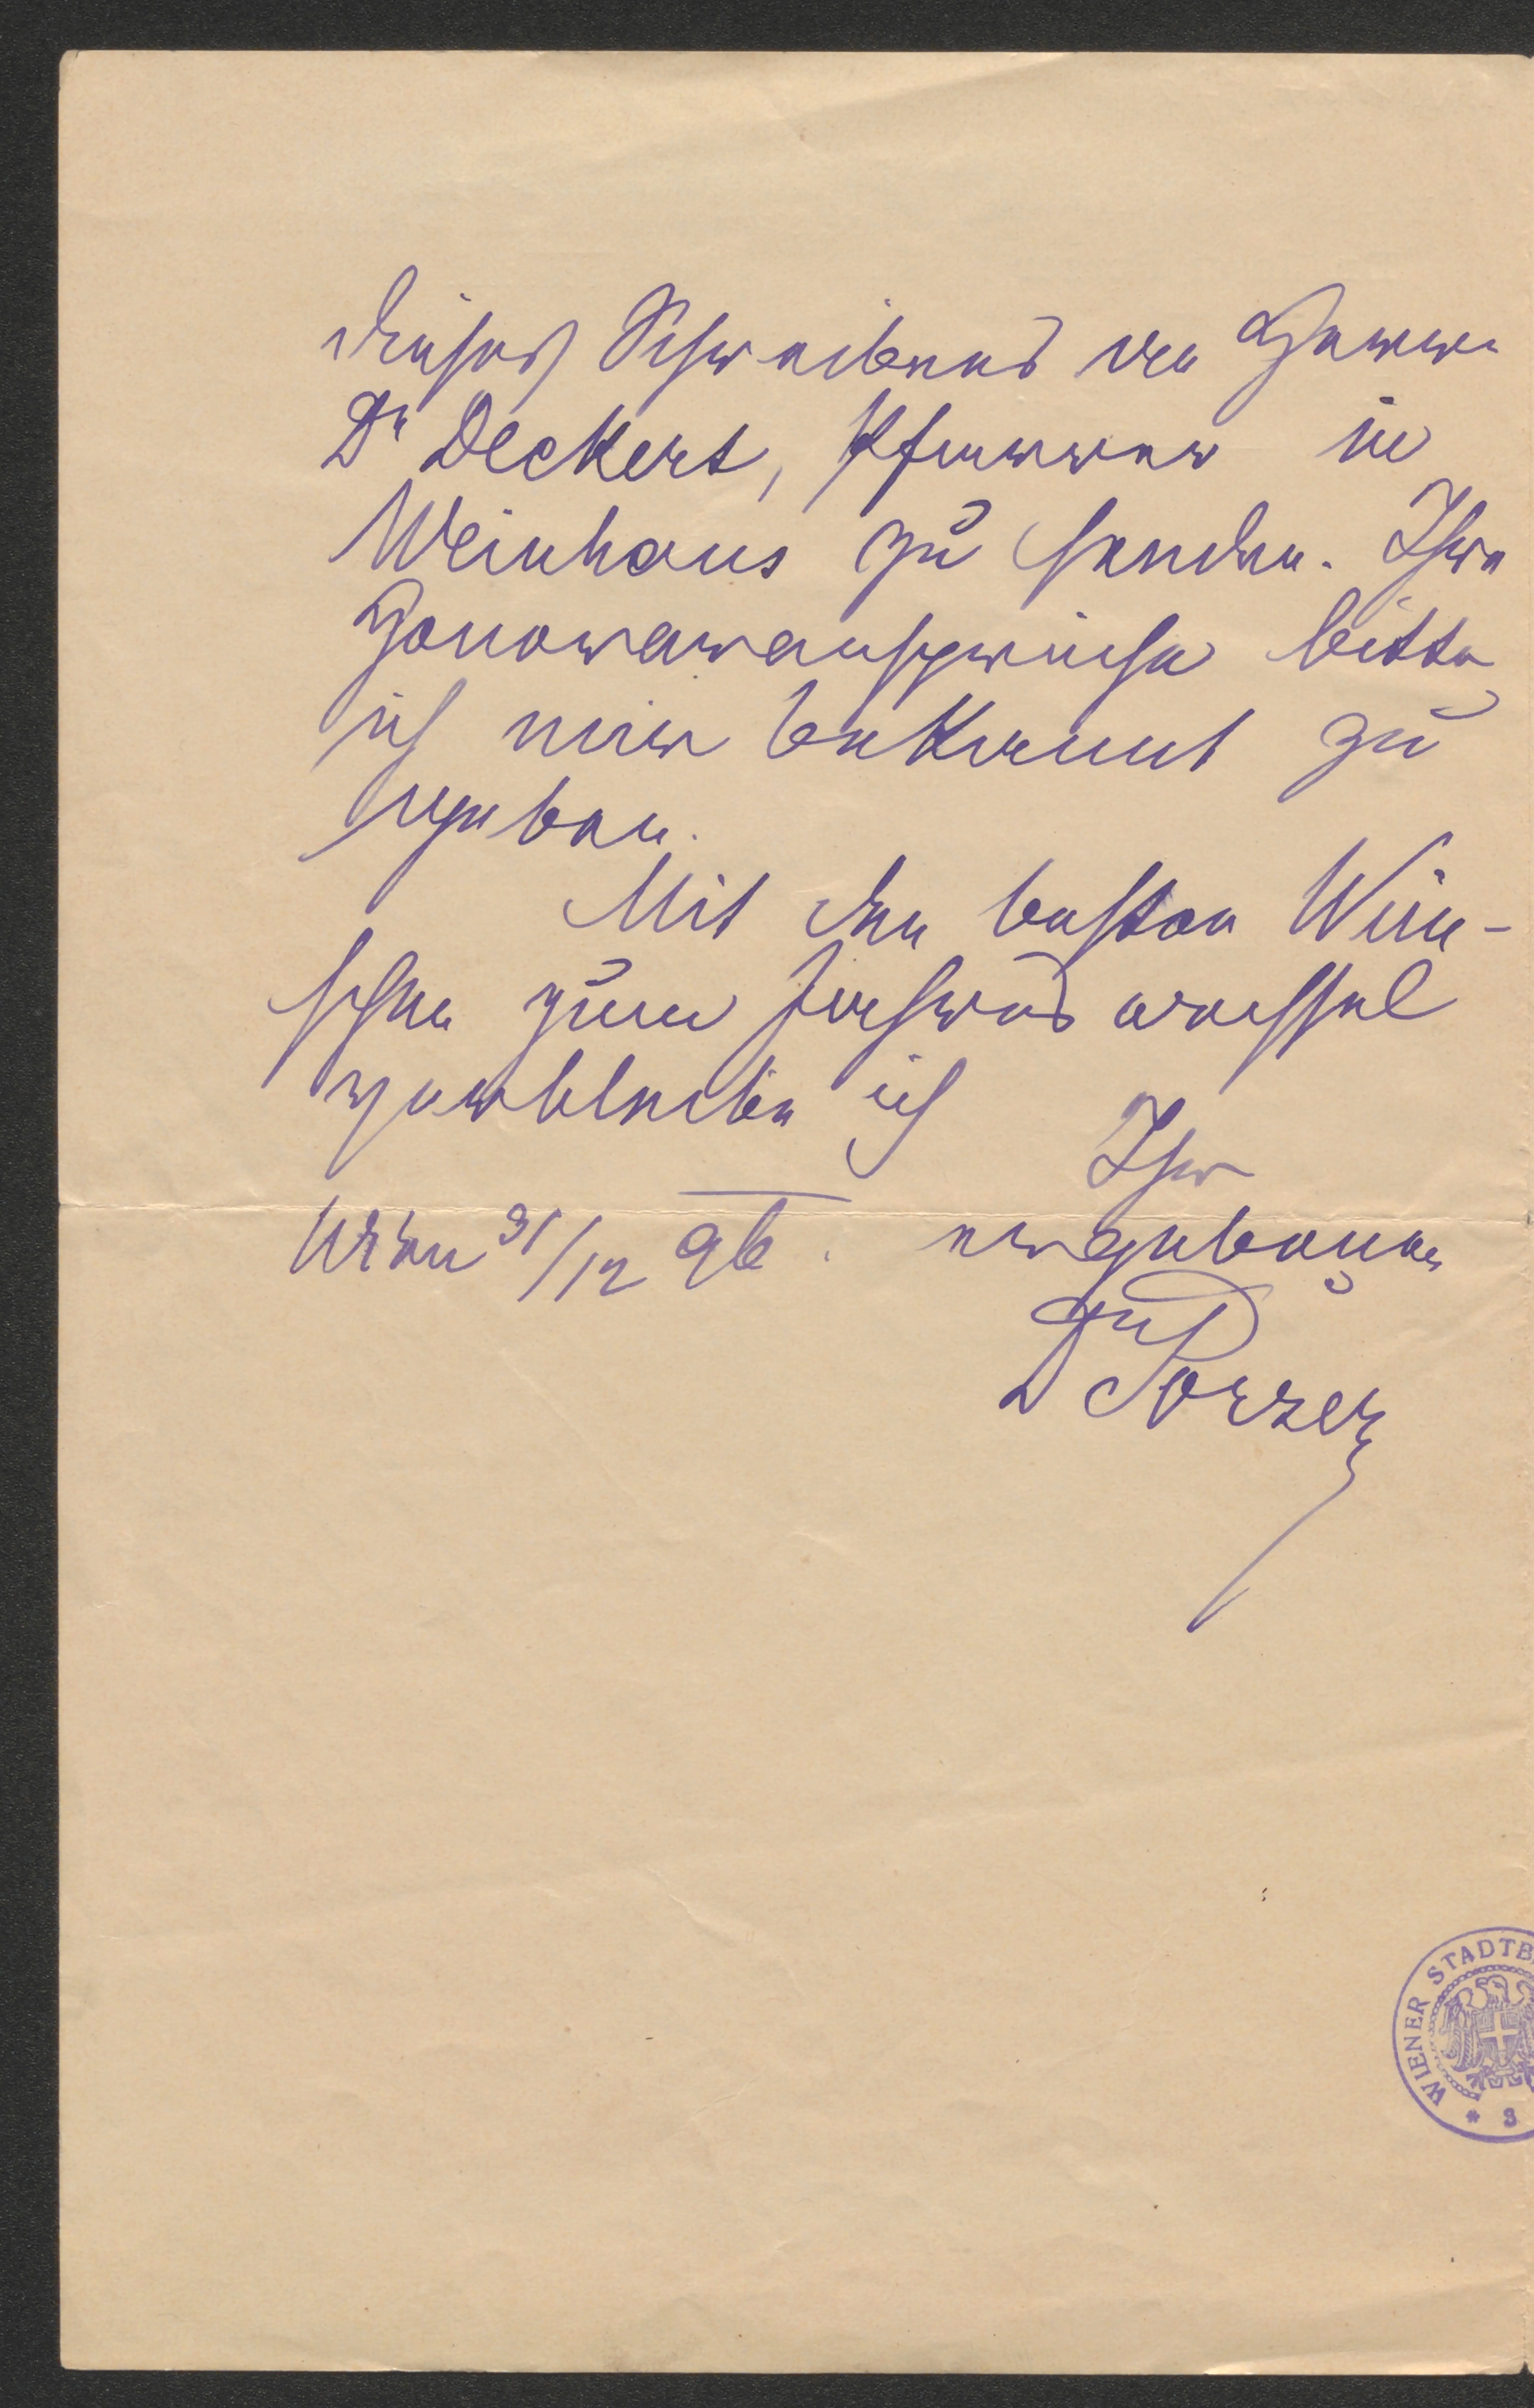 dieses Schreibens an Herrn
Dr Deckert, Pfarrer in
Weinhaus zu senden. Ihre
Honoraransprüche bitte
ich mir bekannt zu
geben.
Mit den besten Wün-
schen zum Jahreswechsel
verbleibe ich
Ihr
Wien 31/12 96. ergebener
Dr Porzer
WIENER STADTB
* 3